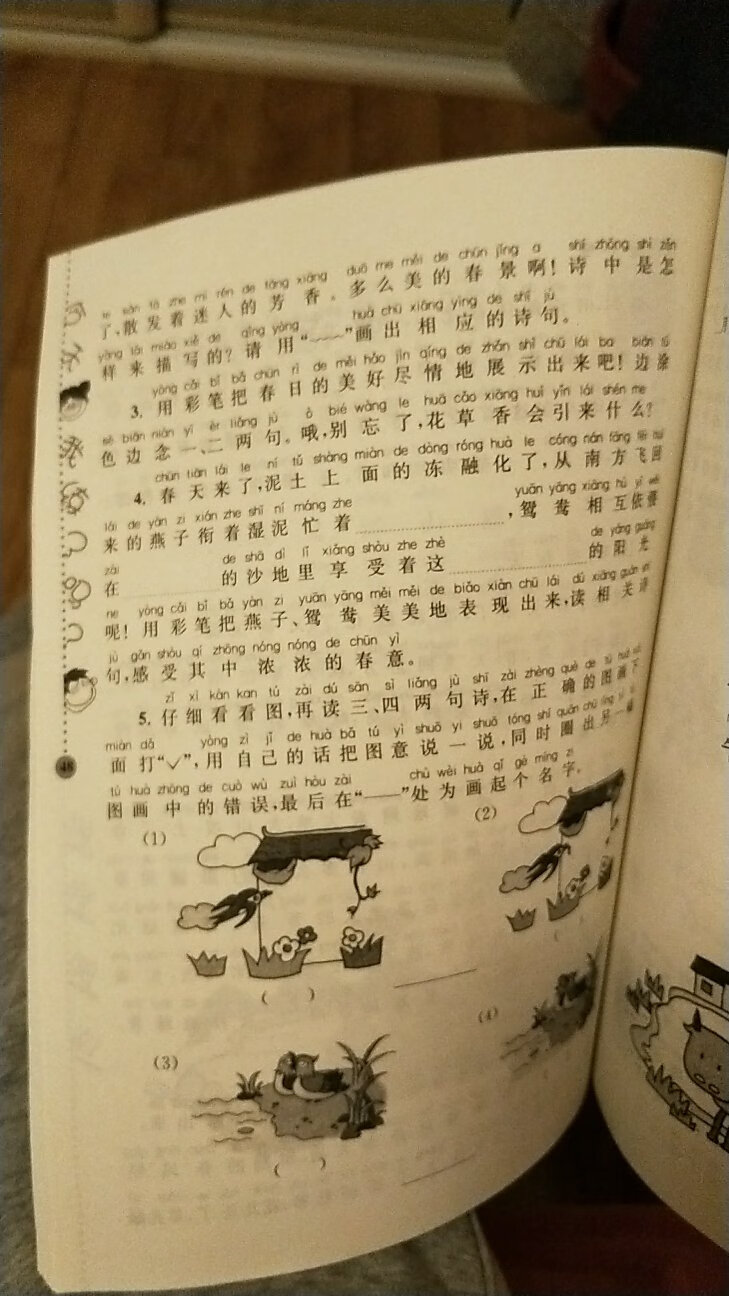 le sàn fā zhe mí rén de fāng xiāng duō me měi de chūn jǐng a shī zhōng shì zěn
了,散发着迷人的芳香。多么美的春景啊!诗中是怎
yàng lái miáo xiě de qǐng yòng huà chū xiāng yìng de shī jù
样来描写的?请用“﹏﹏”画出相应的诗句。
yòng cǎi bǐ bǎ chūn rì de měi hǎo jìn qíng de zhǎn shì chū lái ba biān tú
3. 用彩笔把春日的美好尽情地展示出来吧!边涂
sè biān niàn yī èr liǎng jù ò bié wàng le huā cǎo xiāng huì yǐn lái shén me
色边念一、二两句。哦,别忘了,花草香会引来什么?
chūn tiān lái le ní tǔ shàng miàn de dòng róng huà le cóng nán fāng fēi huí
4. 春天来了,泥土上面的冻融化了,从南方飞回
lái de yàn zi xián zhe shī ní máng zhe yuān yāng xiāng hù yī wēi
来的燕子衔着湿泥忙着,鸳鸯相互依偎
zài de shā dì lǐ xiǎng shòu zhe zhè de yáng guāng
在的沙地里享受着这的阳光
ne yòng cǎi bǐ bǎ yàn zi yuān yāng měi měi de biǎo xiàn chū lái dú xiāng guān shī
呢!用彩笔把燕子、鸳鸯美美地表现出来,读相关诗
jù gǎn shòu qí zhōng nóng nóng de chūn yì
句,感受其中浓浓的春意。
zǐ xì kàn kan tú zài dú sān sì liǎng jù shī zài zhèng què de tú huà xià
5. 仔细看看图,再读三、四两句诗,在正确的图画下
miàn dǎ yòng zì jǐ de huà bǎ tú yì shuō yi shuō tóng shí quān chū lìng yì
面打“✓”,用自己的话把图意说一说,同时圈出另一幅
tú huà zhōng de cuò wù zuì hòu zài chù wèi huà qǐ gè míng zi
图画中的错误,最后在“——”处为画起个名字。
48
(1) (2)
( ) ( )
(3) (4)
( )